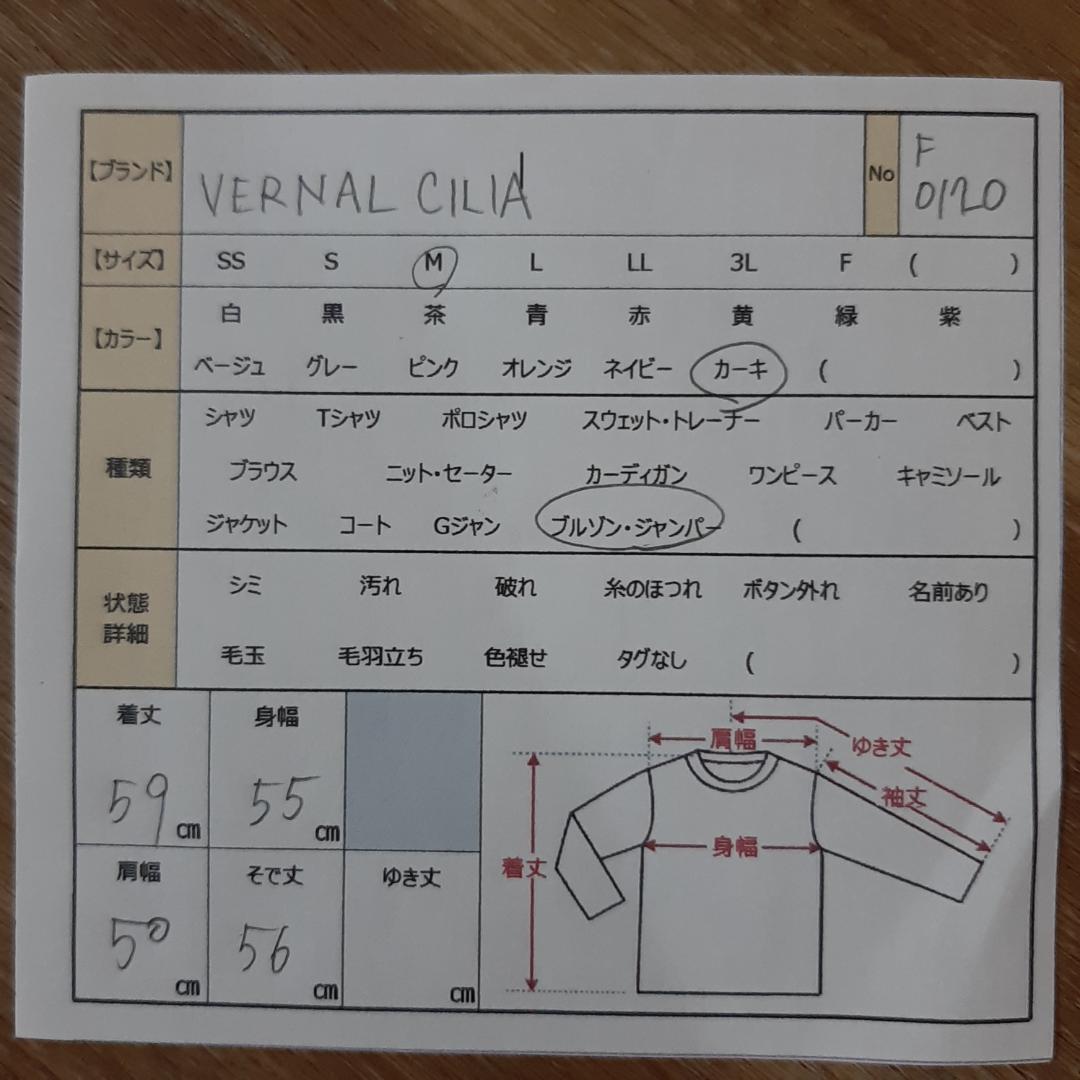 【ブランド】 VERNAL CILIA No F 0120
【サイズ】 SS S M L LL 3L F ( )
【カラー】 白 黒 茶 青 赤 黄 緑 紫
ベージュ グレー ピンク オレンジ ネイビー カーキ ( )
種類 シャツ Tシャツ ポロシャツ スウェット・トレーナー パーカー ベスト
ブラウス ニット・セーター カーディガン ワンピース キャミソール
ジャケット コート Gジャン ブルゾン・ジャンパー ( )
状態詳細 シミ 汚れ 破れ 糸のほつれ ボタン外れ 名前あり
毛玉 毛羽立ち 色褪せ タグなし ( )
着丈 身幅
59 cm 55 cm
肩幅 そで丈 ゆき丈
50 cm 56 cm cm
肩幅
ゆき丈
袖丈
身幅
着丈